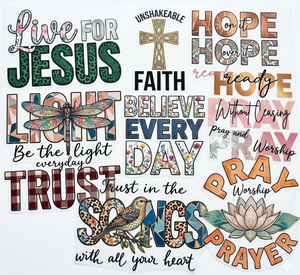 Live FOR
JESUS
UNSHAKEABLE
FAITH
Hope on it
HOPE
over it
HOPE
ready
HOPE
LIGHT
Be the light
everyday
TRUST
BELIEVE
EVERY
DAY
Without Ceasing
PRAY
pray and
Worship
Trust in the
SONGS
with all your heart
PRAY
Worship
PRAYER